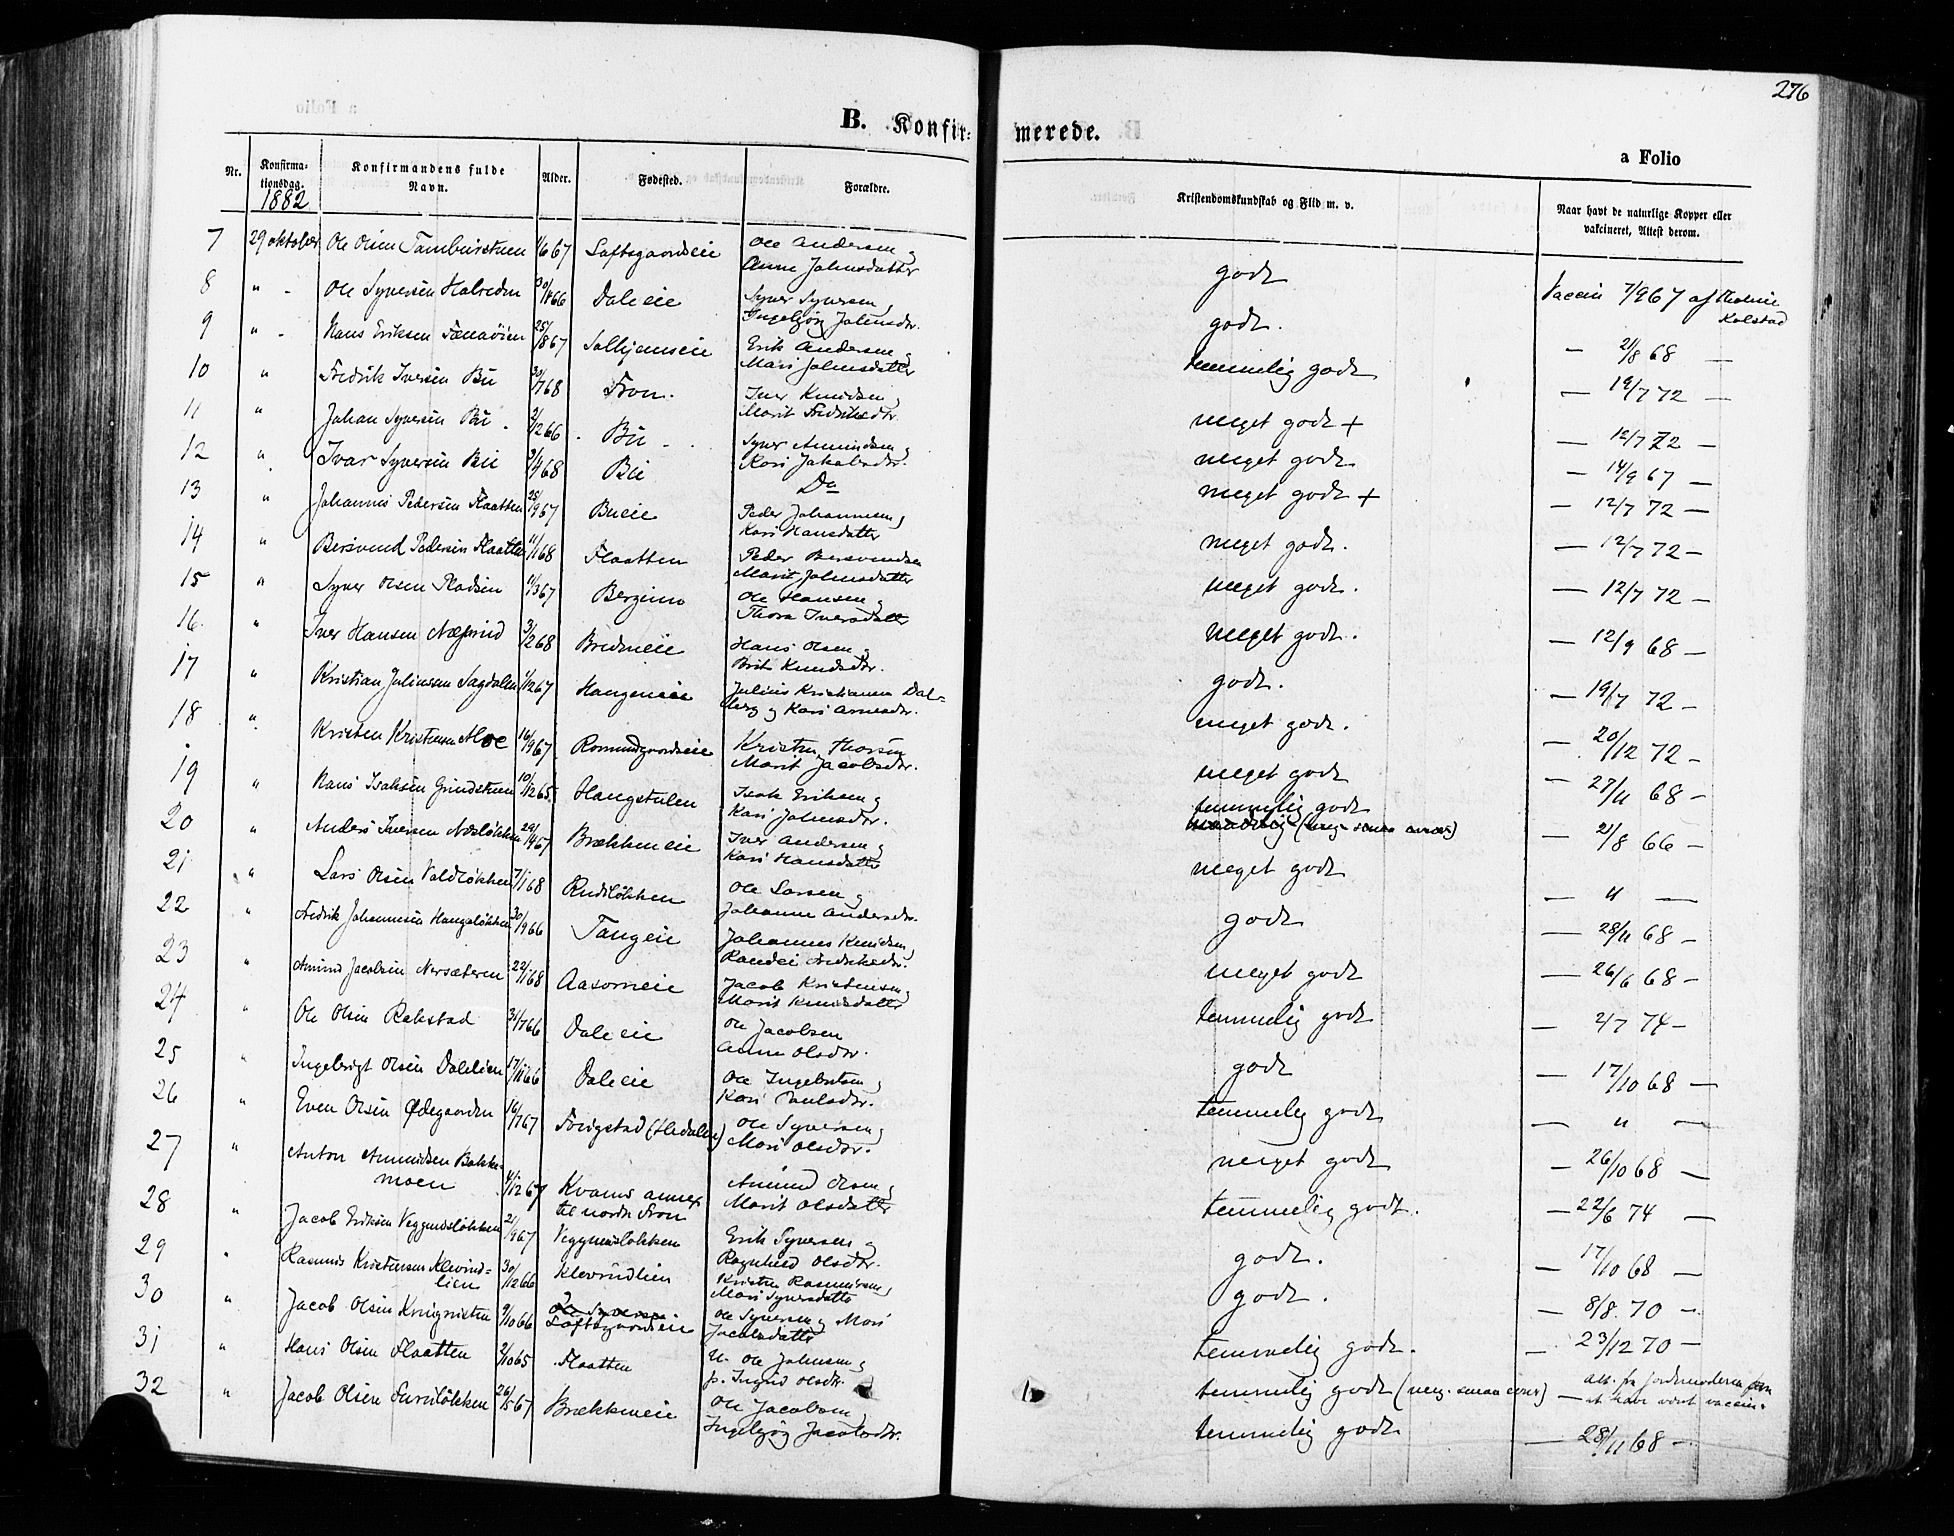 276
B. Konfir-
merede.
a Folio
Nr.
Konfirma-
tionsdag.
1882
Konfirmandens fulde
Navn.
Alder.
Fødested.
Forældre.
Kristendomskundskab og Flid m. v.
Naar havt de naturlige Kopper eller
vakcineret, Attest derom.
7 29 oktober Ole Olsen Tamburstuen 1/6 67 Loftsgaardseie Ole Andersen og
Anne Johnsdatter godt Vaccin 7/9 67 af Kolstad
8 " - Ole Syversen 30/ 66 Daleeie Syver Syversen,
Ingebjøg Johnsdr. godt. — 21/8 68 —
9 " - Hans Eriksen 25/8 67 Solhjemseie Erik Andersen og
Mari Johnsdatter temmelig godt — 19/7 72 —
10 " Fredrik Iversen Bu 30/7 68 Fron. Iver Knudsen,
Marit Fredriksdr. meget godt + — 12/7 72 —
11 " Johan Syversen Bu 2/12 66 Bu Syver Amundsen,
Kari Jakobsdr. meget godt — 14/9 67 —
12 " Ivar Syversen Bu 68 Bu Do meget godt + — 12/7 72 —
13 " Johannes Pedersen Flaatten 25/9 67 Bueie Peder Johannesen,
Kari Hansdatter meget godt. — 12/7 72 —
14 " Bersvend Pedersen Flaatten 11/1 68 Flaatten Peder Bersvendsen
Marit Johnsdatter meget godt. — 12/7 72 —
15 " Syver Olsen Pladsen 11/3 67 Bergum Ole Hansen og
Thora Iversdatter meget godt. — 12/9 68 —
16 " Iver Hansen 3/12 68 Bredneeie Hans Olsen og
Brit Knudsdr. godt. — 19/7 72 —
17 " Kristian Juliussen Sagdalen 1/12 67 Haugeneie Julius Kristiansen Dal-
berg og Kari Arnesdr. meget godt. — 20/12 72 —
18 " Kristen Kristensen Moe 16/9 67 Romundgaardseie Kristen Thorsen
Marit Jacobsdr. meget godt — 27/11 68 —
19 " Hans Isaksen Grindstuen 10/12 65 Haugstulen Isak Eriksen og
Kari Johnsdr. temmelig godt
(meg. smaa evner) — 21/8 66 —
20 " Anders Iversen 29/4 67 Brækkeneie Iver Andersen og
Kari Hansdatter meget godt — " —
21 " Lars Olsen Voldløkken 7/1 68 Rudiløkken Ole Larsen og
Johanne Andersdr. godt — 28/11 68 —
22 " Fredrik Johannesen Haugeløkken 30/9 66 Tangeie Johannes Knudsen,
Randei Fredriksdr. meget godt — 26/6 68 —
23 " Amund Jacobsen Nersæteren 22/1 68 Aasorneie Jacob Kristensen,
Marit Knudsdatter temmelig godt — 2/7 74 —
24 " Ole Olsen Rakstad 31/7 66 Daleeie Ole Jacobsen
Anne Olsdr. godt — 17/10 68 —
25 " Ingebrigt Olsen Dalelien 17/11 66 Daleeie Ole Ingebritsen,
Kari Paulsdr. temmelig godt — " —
26 " Even Olsen Ødegaarden 16/7 67 Forigstad (Hedalen) Ole Syversen,
Mari Olsdr. meget godt — 26/10 68 —
27 " Anton Amundsen Bakke-
moen 4/12 67 Kvams annex
til nordre Fron Amund Olsen,
Marit Olsdatter temmelig godt. — 22/6 74 —
28 " Jacob Eriksen Veggumsløkken 21/9 67 Veggumsløkken Erik Syversen og
Ragnhild Olsdr. godt. — 17/10 68 —
29 " Rasmus Kristensen Klevrud-
lien 30/12 66 Klevrudlien Kristen Rasmussen,
Mari Syversdatter godt. — 8/8 70 —
30 " Jacob Olsen 9/10 66 Loftsgaardseie Ole Syversen og Mari
Jacobsdatter temmelig godt. — 23/12 70 —
31 " Hans Olsen Flaatten 2/10 65 Flaatten U. Ole Johnsen og
p. Ingrid Olsdr. temmelig godt (meg. smaa evner) — att. fra Jordemoderen
at have været vaccin.
32 " Jacob Olsen 26/5 67 Brækkeneie Ole Jacobsen,
Ingebjøg Jacobsdr. temmelig godt — 28/11 68 —